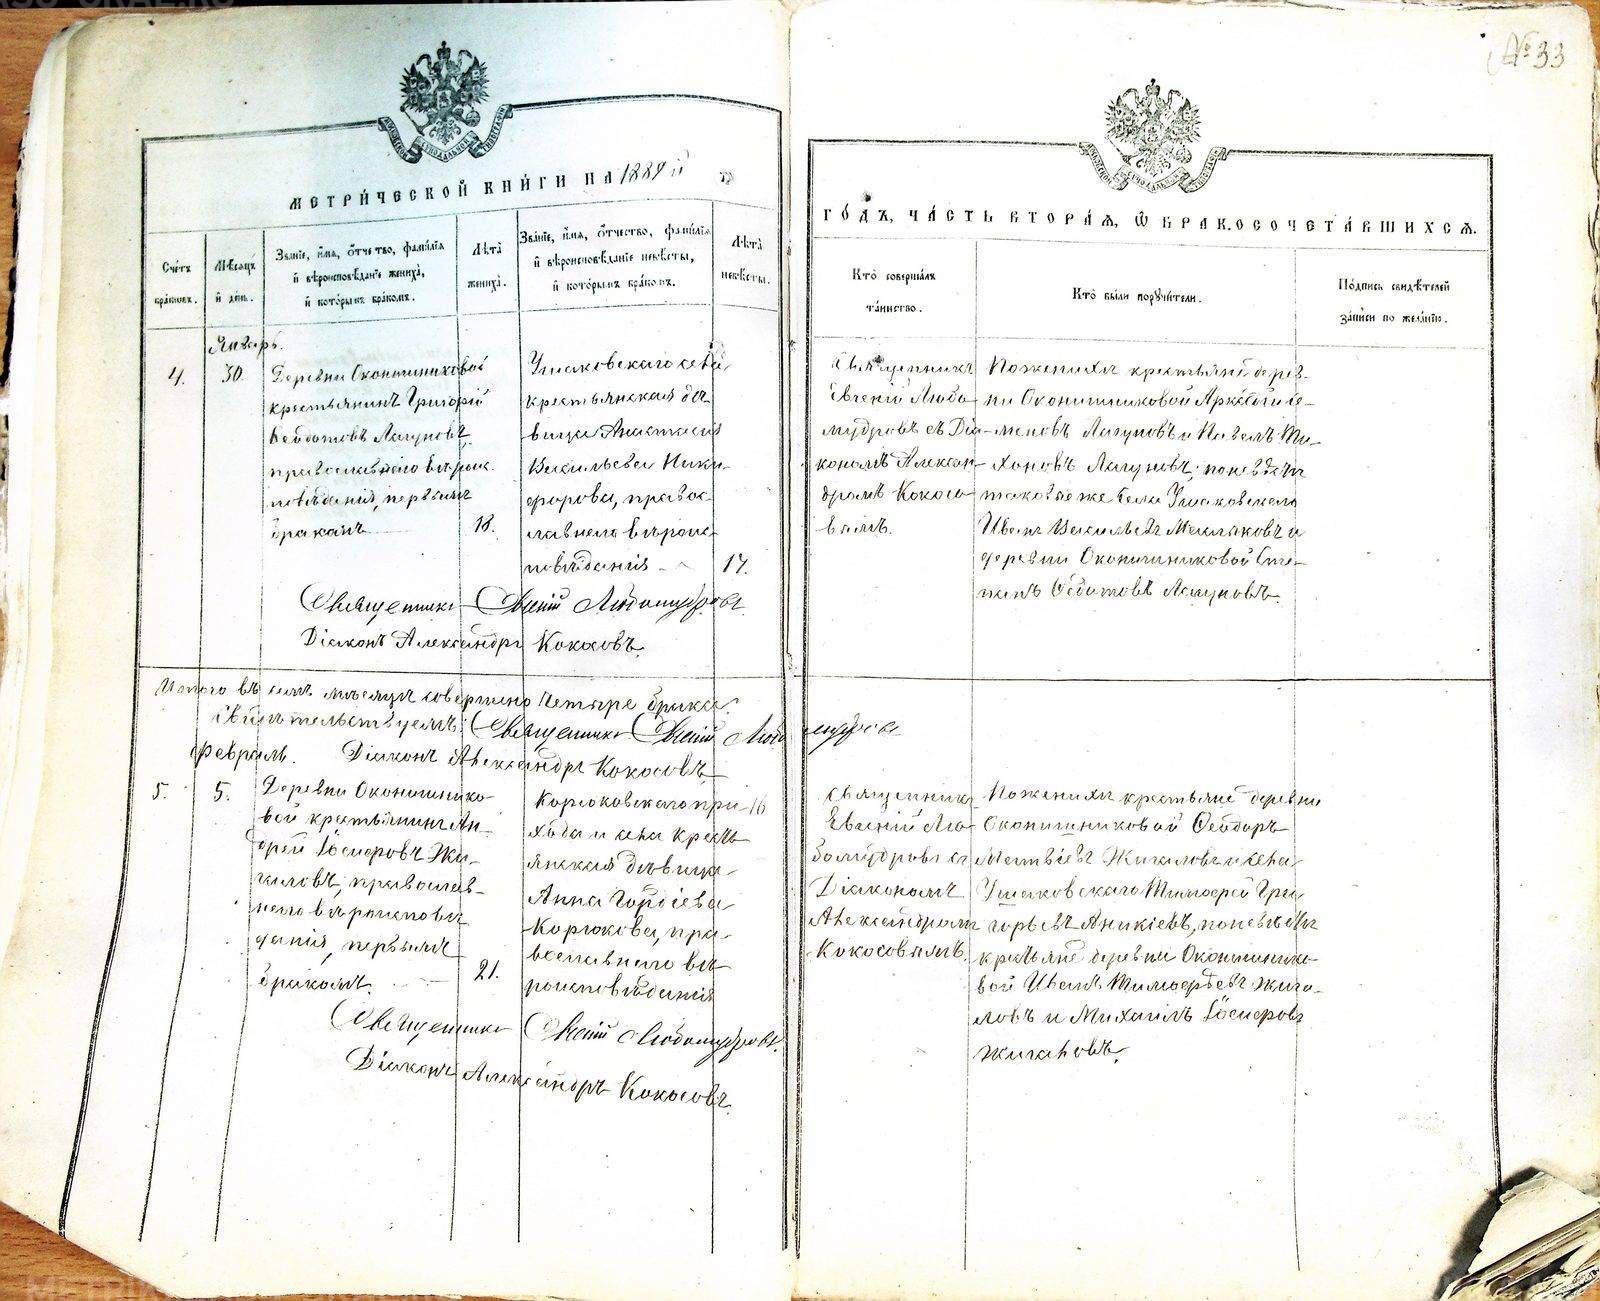 № 33
МЕТРИЧЕСКОЙ КНИГИ НА 1889 й
ГОДЪ, ЧАСТЬ ВТОРАЯ, Ѡ БРАКОСОЧЕТАВШИХСЯ.
Счетъ браковъ.
Мѣсяцъ и день.
Званіе, имя, отчество, фамилія
и вѣроисповѣданіе жениха,
и которымъ бракомъ.
Лѣта жениха.
Званіе, имя, отчество, фамилія
и вѣроисповѣданіе невѣсты,
и которымъ бракомъ.
Лѣта невѣсты.
Кто совершалъ
таинство.
Кто были поручители.
Подпись свидѣтелей
записи по желанію.
Январь.
4.
30.
Деревни Оконишниковой
крестьянинъ Григорій
Ѳеодотовъ Лагуновъ,
православнаго вѣроис-
повѣданія, первымъ
бракомъ
18.
Ушаковскаго села
крестьянская дѣ-
вица Анастасія
Васильева Ники-
форова, правос-
лавнаго вѣроис-
повѣданія
17.
Священникъ
Евгеній Любо-
мудровъ съ Діа-
кономъ Алексан-
дромъ Кокосо-
вымъ.
По женихѣ крестьяне дерев-
ни Оконишниковой
Лагуновъ и Павелъ Ти-
хоновъ Лагуновъ; по невѣстѣ
таковые же села Ушаковскаго
Иванъ Васильевъ и
деревни Оконишниковой Сте-
панъ Ѳедотовъ Лагуновъ.
Священникъ Евгеній Любомудровъ.
Діаконъ Александръ Кокосовъ.
Итого въ семъ мѣсяцѣ совершено четыре брака.
Свидѣтельствуемъ: Священникъ Евгеній Любомудровъ
Февраль. Діаконъ Александръ Кокосовъ.
5.
5.
Деревни Оконишнико-
вой крестьянинъ Ан-
дрей Іосифовъ Жи-
галовъ, православ-
наго вѣроисповѣ-
данія, первымъ
бракомъ.
21.
Корюковскаго при-
хода и села кресть-
янская дѣвица
Анна Гордіева
Корюкова, пра-
вославнаго вѣ-
роисповѣданія
16
Священникъ
Евгеній Лю-
бомудровъ съ
Діакономъ
Александромъ
Кокосовымъ.
По женихѣ крестьяне деревни
Оконишниковой Ѳеодоръ
Матвѣевъ Жигаловъ и села
Ушаковскаго Тимофей Гри-
горьевъ Аникіевъ, по невѣстѣ
крестьяне деревни Оконишнико-
вой Иванъ Тимофеевъ Жига-
ловъ и Михаилъ Іосифовъ
Жигаловъ.
Священникъ Евгеній Любомудровъ.
Діаконъ Александръ Кокосовъ.